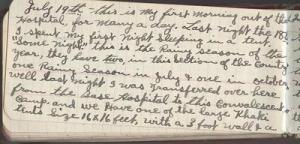 July 19th - this is my first morning out of the
Hospital, for many a day. Last night the 18th
I spent my first night sleeping in a tent
"Some Night" this is the Rainy Season of the
Year. they have two, in this Section of the County
one Rainy Season in July & one in October
well last night I was transferred over here
from the Base Hospital to this Convalescent
Camp. and we have one of the large Khaki
tents size 16 x 16 feet, with a 3 foot wall & a